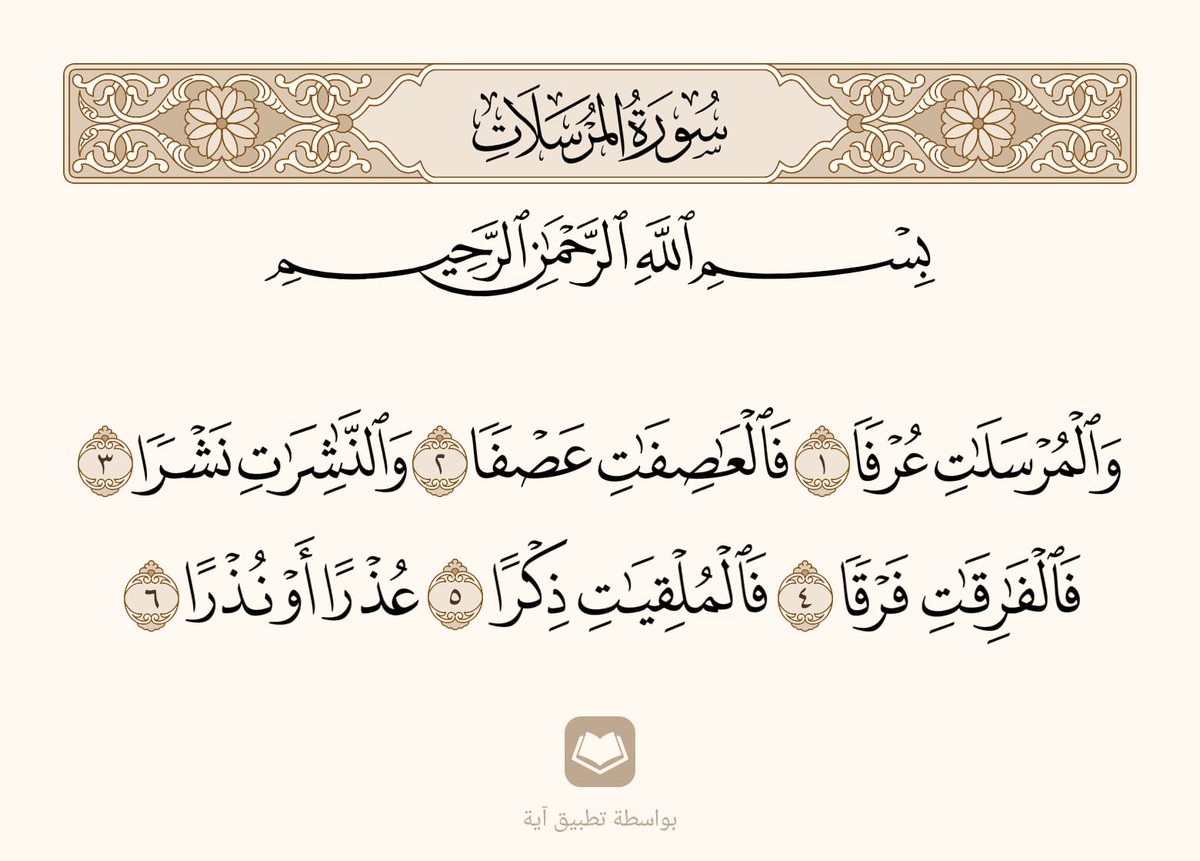 سُورَةُ المُرۡسَلَاتِ
بِسۡمِ ٱللَّهِ ٱلرَّحۡمَٰنِ ٱلرَّحِيمِ
وَٱلۡمُرۡسَلَٰتِ عُرۡفٗا ١ فَٱلۡعَٰصِفَٰتِ عَصۡفٗا ٢ وَٱلنَّٰشِرَٰتِ نَشۡرٗا ٣
فَٱلۡفَٰرِقَٰتِ فَرۡقٗا ٤ فَٱلۡمُلۡقِيَٰتِ ذِكۡرًا ٥ عُذۡرًا أَوۡ نُذۡرًا ٦
بواسطة تطبيق آية